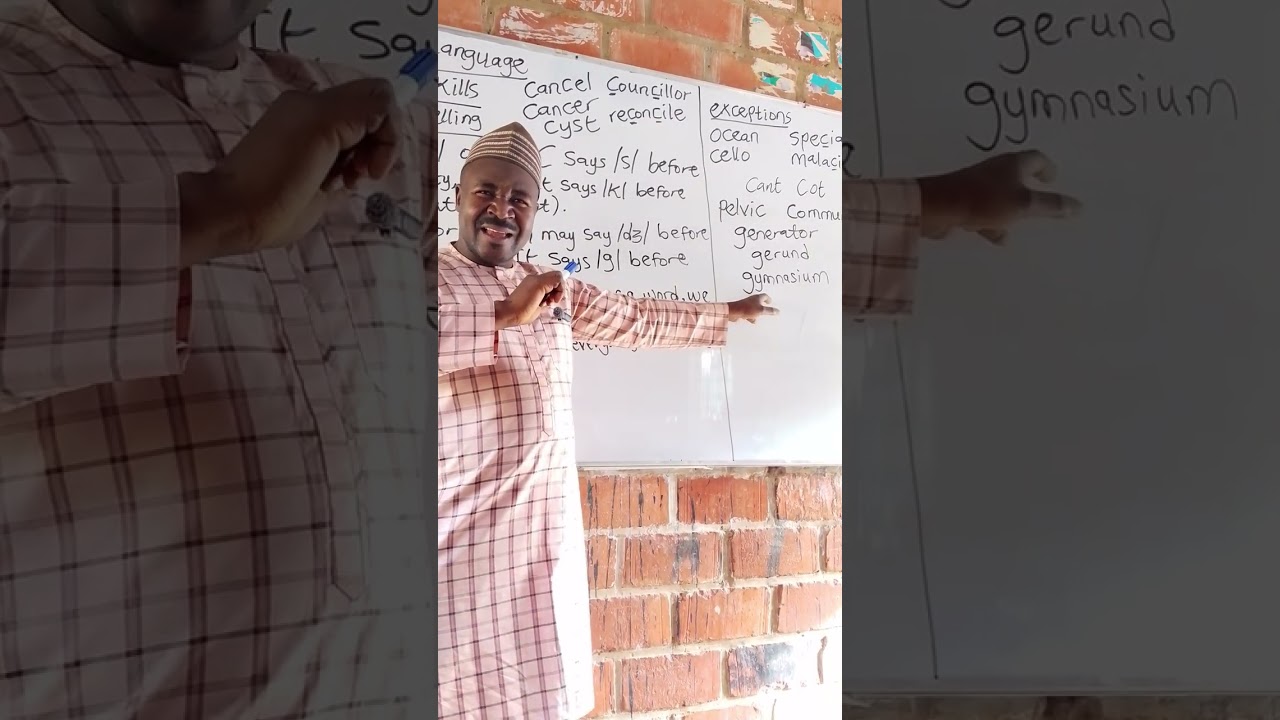 anguage
kills
elling
Cancel Councillor
Cancer reconcile
cyst
C says /s/ before
t says /k/ before
may say /dʒ/ before
It says /g/ before
word, we
exceptions
ocean specia
cello malaci
Cant Cot
pelvic Commu
generator
gerund
gymnasium
It say
gerund
gymnasium